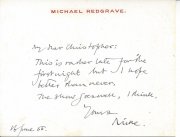 MICHAEL REDGRAVE.
My dear Christopher:
This is rather late for the
first night but I hope
better than never.
The show goes well, I think.
Yours
June 65.